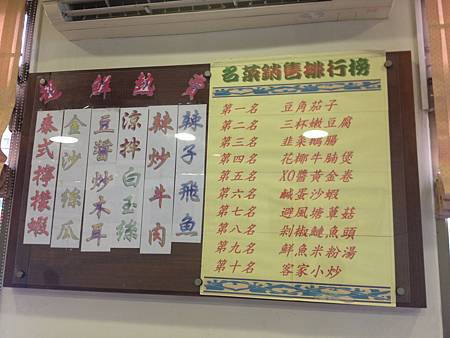 鮮
辣子飛魚
辣炒牛肉
涼拌白玉絲
豆醬炒木耳
金沙絲瓜
泰式檸檬蝦
名菜銷售排行榜
第一名 豆角茄子
第二名 三杯嫩豆腐
第三名 韭菜鵝腸
第四名 花椰牛腩煲
第五名 XO醬黃金卷
第六名 鹹蛋沙蝦
第七名 避風塘草菇
第八名 剁椒鰱魚頭
第九名 鮮魚米粉湯
第十名 客家小炒